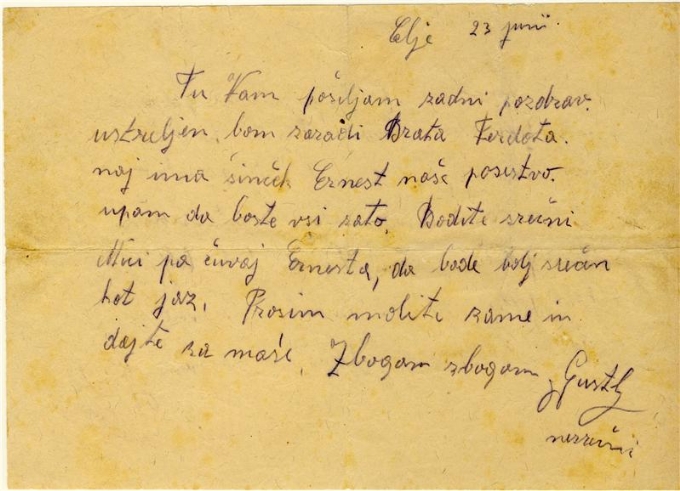 Celje 23 junii.
Tu Vam pošiljam zadni pozdrav.
ustreljen bom zaradi Brata Ferdota.
naj ima sinček Ernest naše posestvo.
upam da boste vsi zato. Bodite srečni
Mici pa čuvaj Ernesta, da bode bolj srečen
kot jaz. Prosim molite zame in
dajte za maše. Zbogom zbogom Gustl
nesrečni